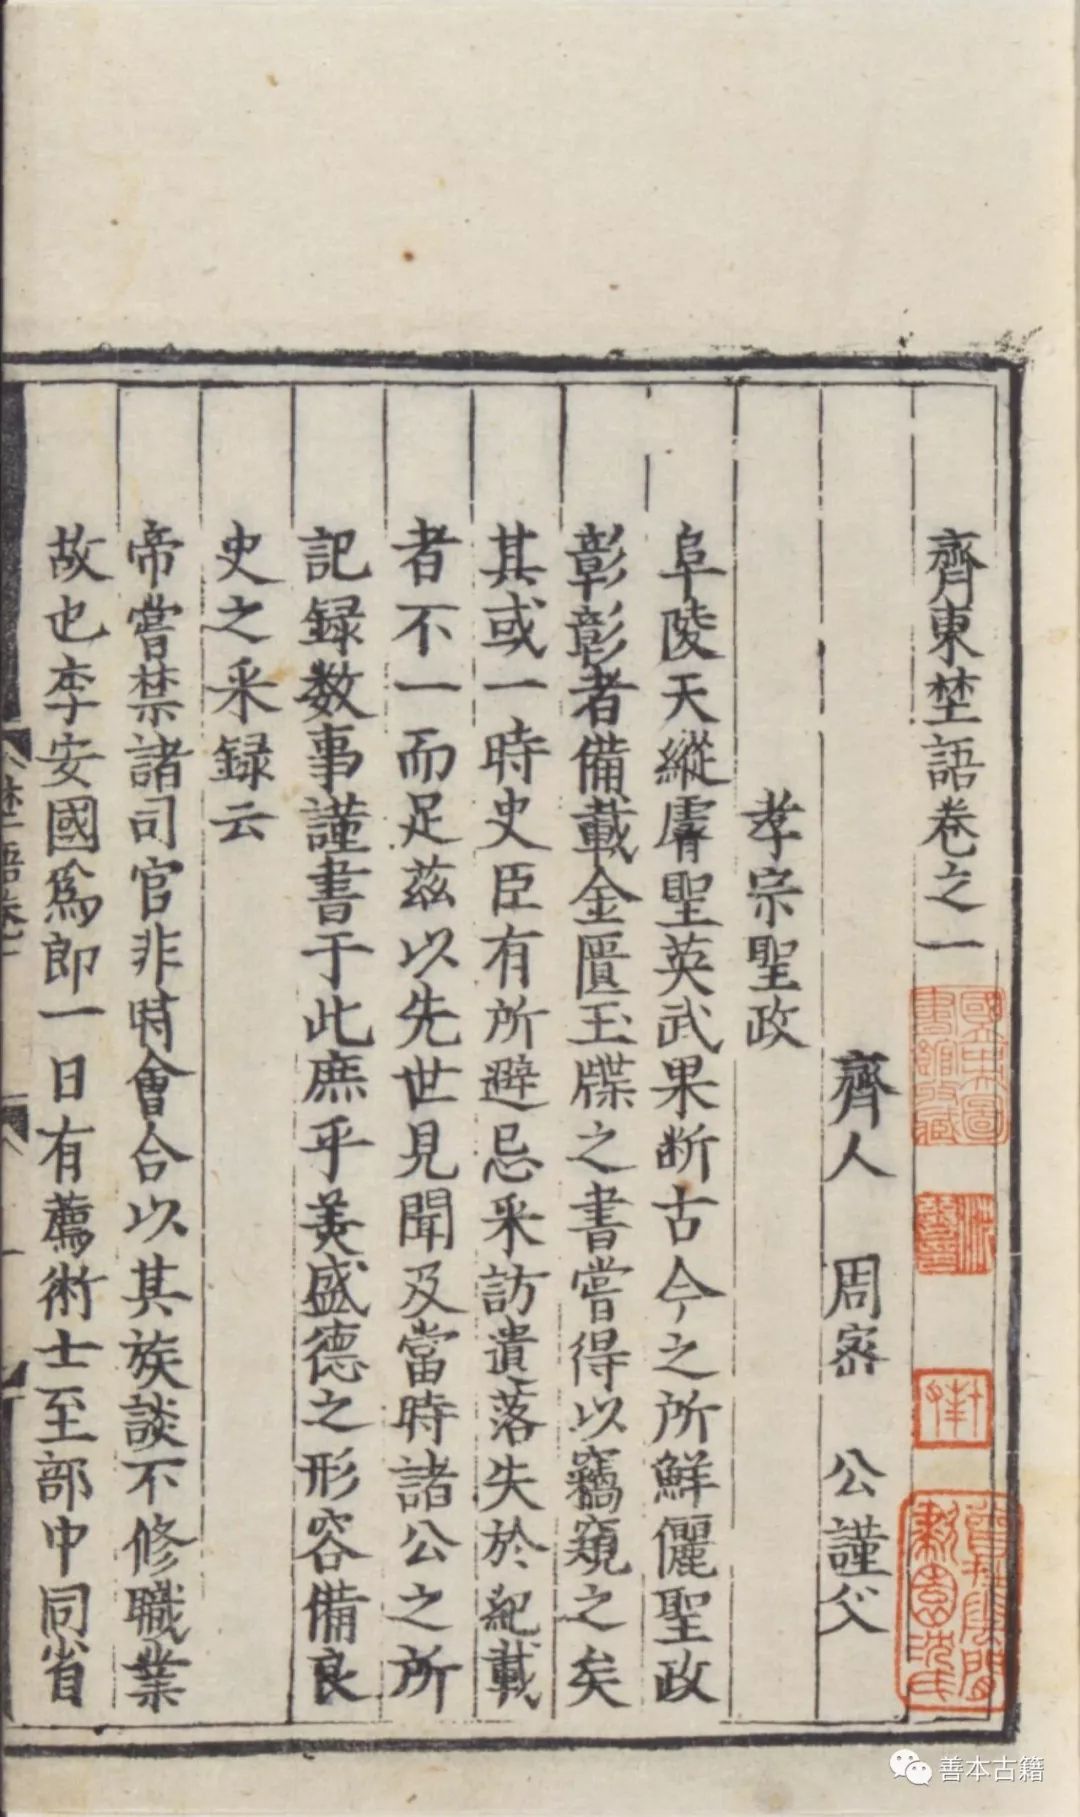 齊東埜語卷之一
齊人　周密　公謹父
孝宗聖政
阜陵天縱睿聖英武果斷古今之所鮮儷聖政
彰彰者備載金匱玉牒之書嘗得以竊窺之矣
其或一時史臣有所避忌采訪遺落失於紀載
者不一而足茲以先世見聞及當時諸公之所
記録数事謹書于此庶乎美盛德之形容備良
史之采録云
帝嘗禁諸司官非時會合以其族談不修職業
故也李安國爲郎一日有薦術士至部中同省
埜語卷一
國立中央圖書館收藏
善本古籍